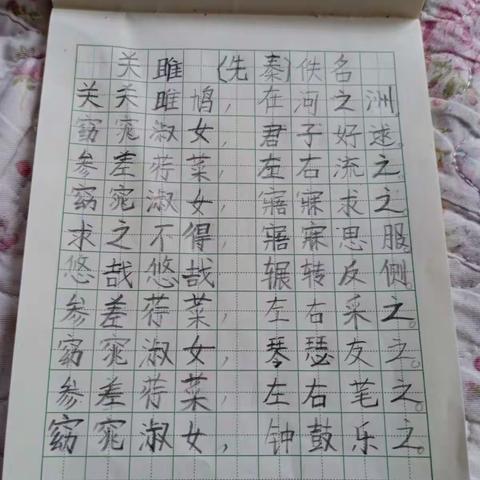 关雎(先秦)佚名
关关雎鸠,在河之洲,
窈窕淑女,君子好逑。
参差荇菜,左右流之。
窈窕淑女,寤寐求之。
求之不得,寤寐思服。
悠哉悠哉,辗转反侧。
参差荇菜,左右采之。
窈窕淑女,琴瑟友之。
参差荇菜,左右芼之。
窈窕淑女,钟鼓乐之。